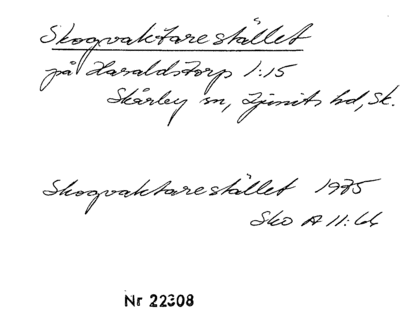 Skogvaktarestället
på Haraldstorp 1:15
Skärlev sn, Ljunits hd, Sk.
Skogvaktarestället 1975
Sko A II:
Nr 22308